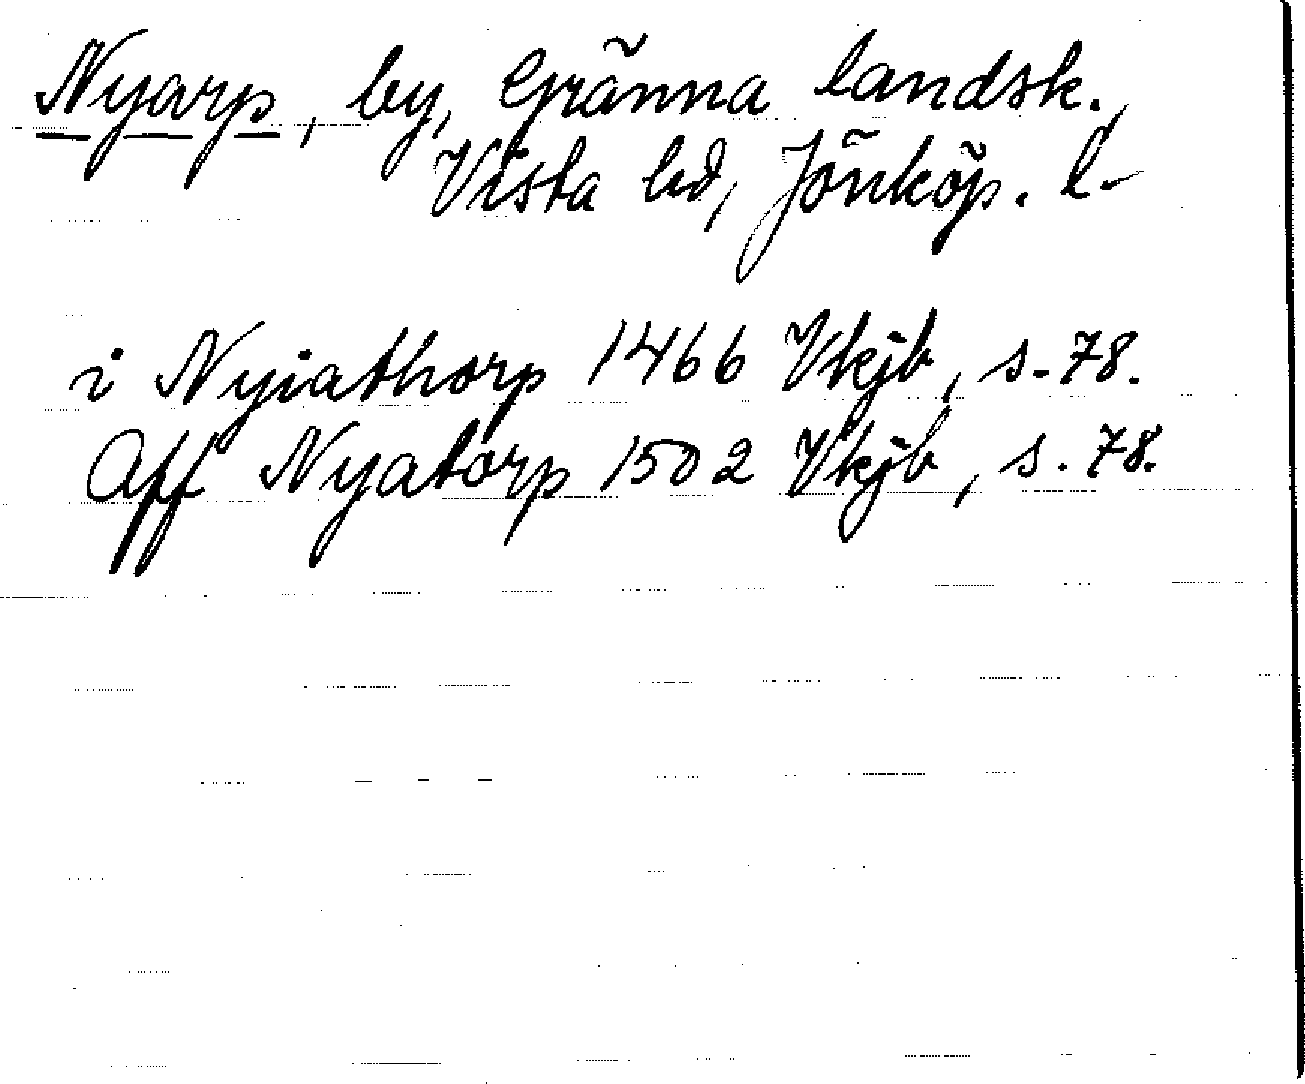 Nyarp, by, Gränna landsk.,
Vista hd, Jönköp. l.
i Nyiathorp 1466 Vkjb, s. 78.
Aff Nyatorp 1502 Vkjb, s. 78.